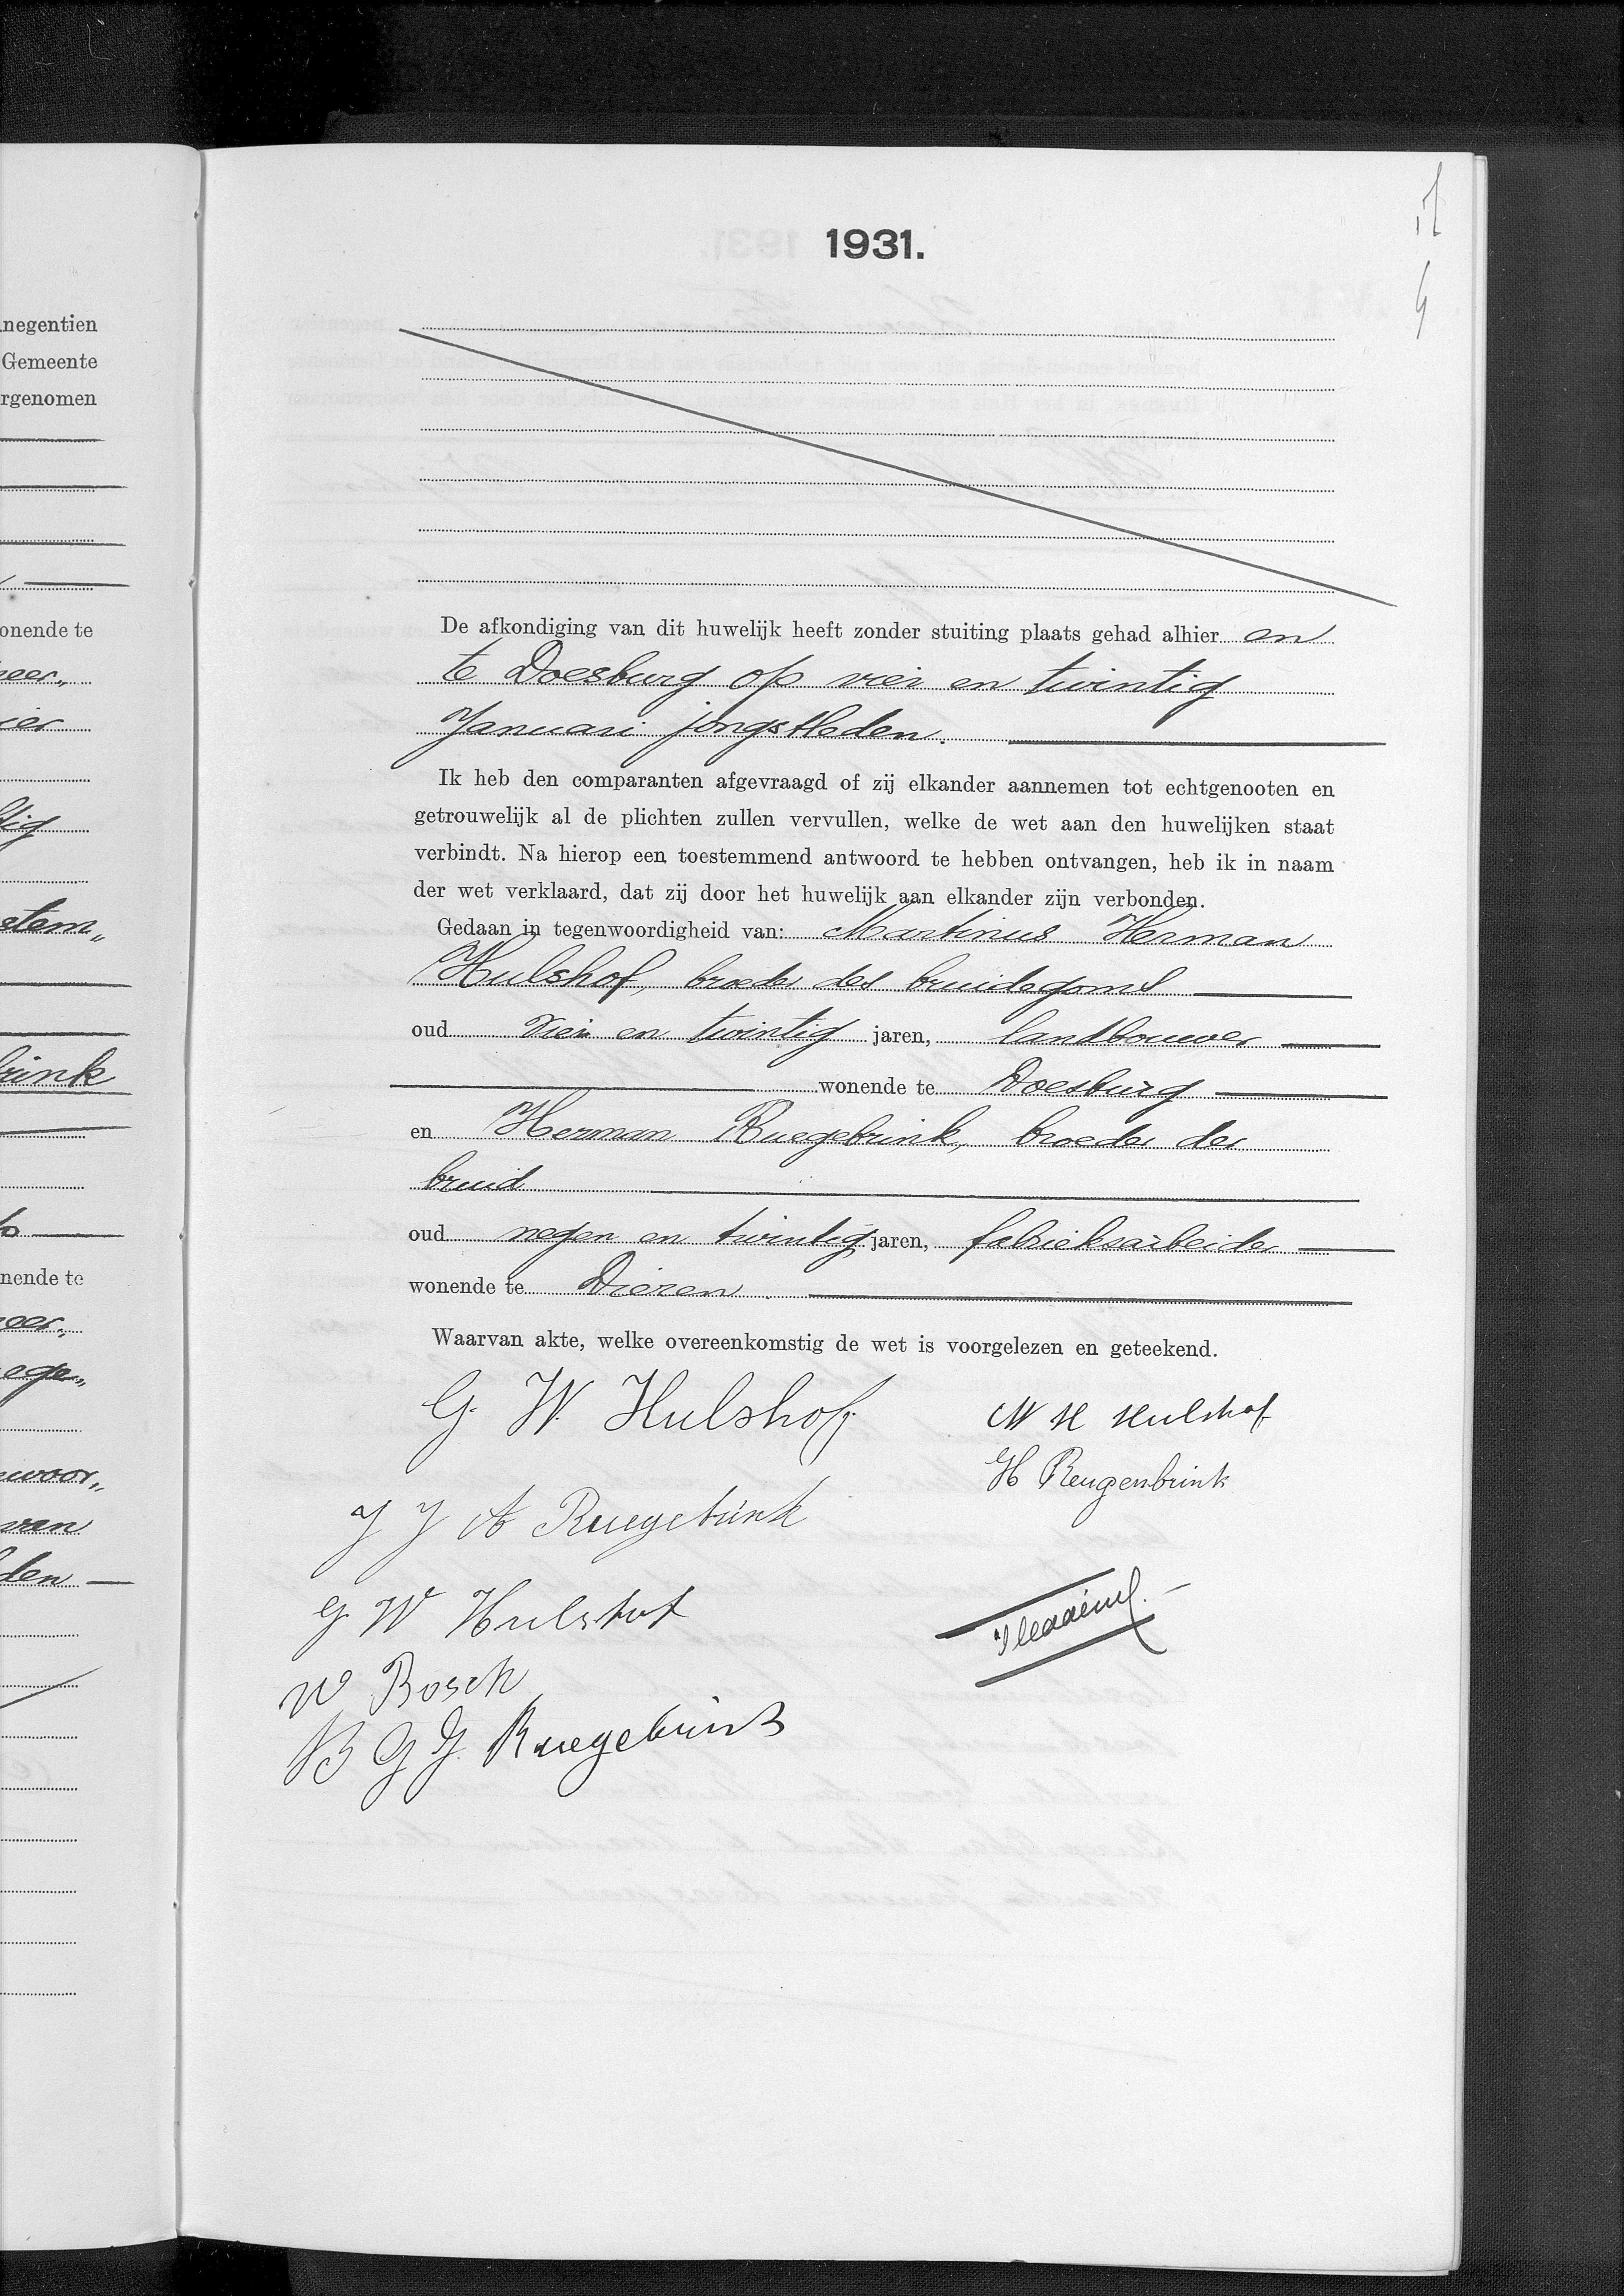 1931.
De afkondiging van dit huwelijk heeft zonder stuiting plaats gehad alhier en
te Doesburg op vier en twintig
Januari jongstleden.
Ik heb den comparanten afgevraagd of zij elkander aannemen tot echtgenooten en
getrouwelijk al de plichten zullen vervullen, welke de wet aan den huwelijken staat
verbindt. Na hierop een toestemmend antwoord te hebben ontvangen, heb ik in naam
der wet verklaard, dat zij door het huwelijk aan elkander zijn verbonden.
Gedaan in tegenwoordigheid van: Martinus Herman
Hulshof, broeder des bruidegoms
oud vier en twintig jaren, landbouwer
wonende te Doesburg
en Herman Ruegebrink, broeder der
bruid
oud negen en twintig jaren, fabrieksarbeider
wonende te Dieren.
Waarvan akte, welke overeenkomstig de wet is voorgelezen en geteekend.
G. W. Hulshof
M H Hulshof
H Reugenbrink
J J A Ruegebrink
G W Hulshof
W Bosch
B G J. Ruegebrink
negentien
Gemeente
rgenomen
onende te
eer„
ier
tig
stem„
rink
to
nende te
eer„
ege„
woor„
van
den